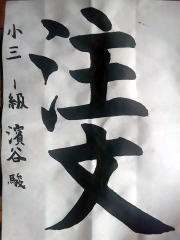 注文
小三 一級 濱谷 駿